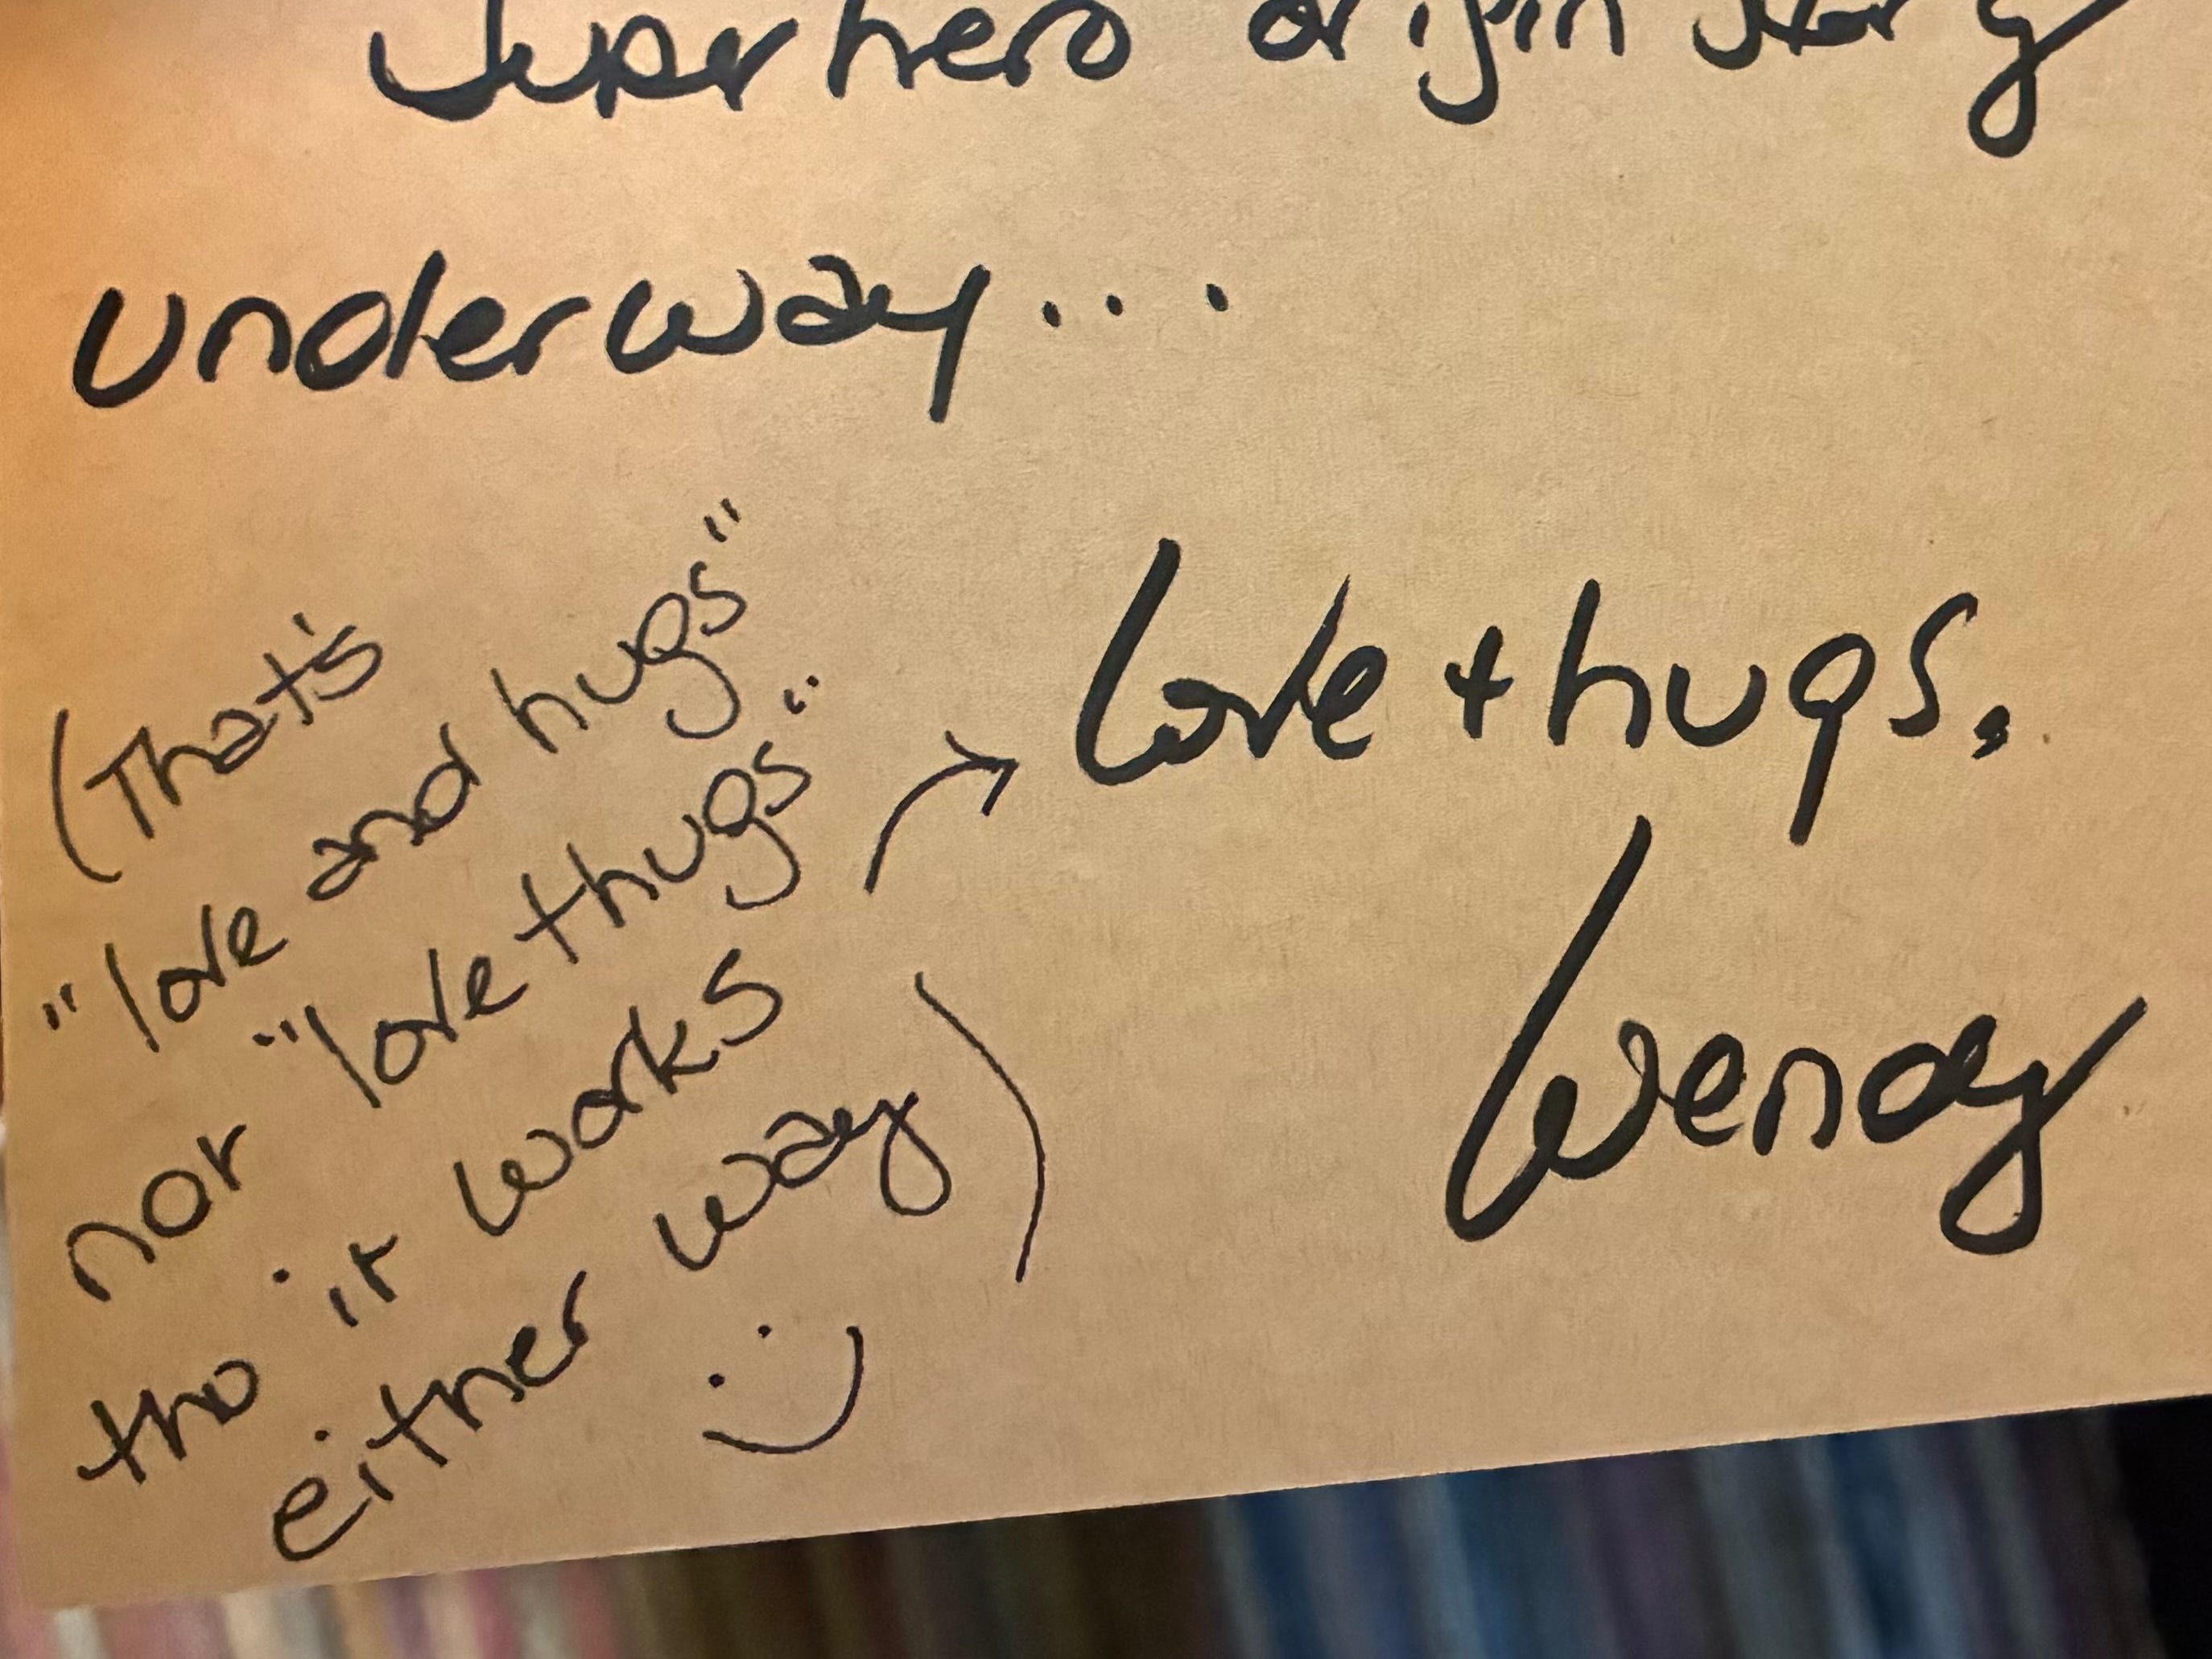 Superhero origin story
underway...
love + hugs.
Wendy
(That's
"love and hugs"
nor "love thugs"
tho it works
either way)
:)